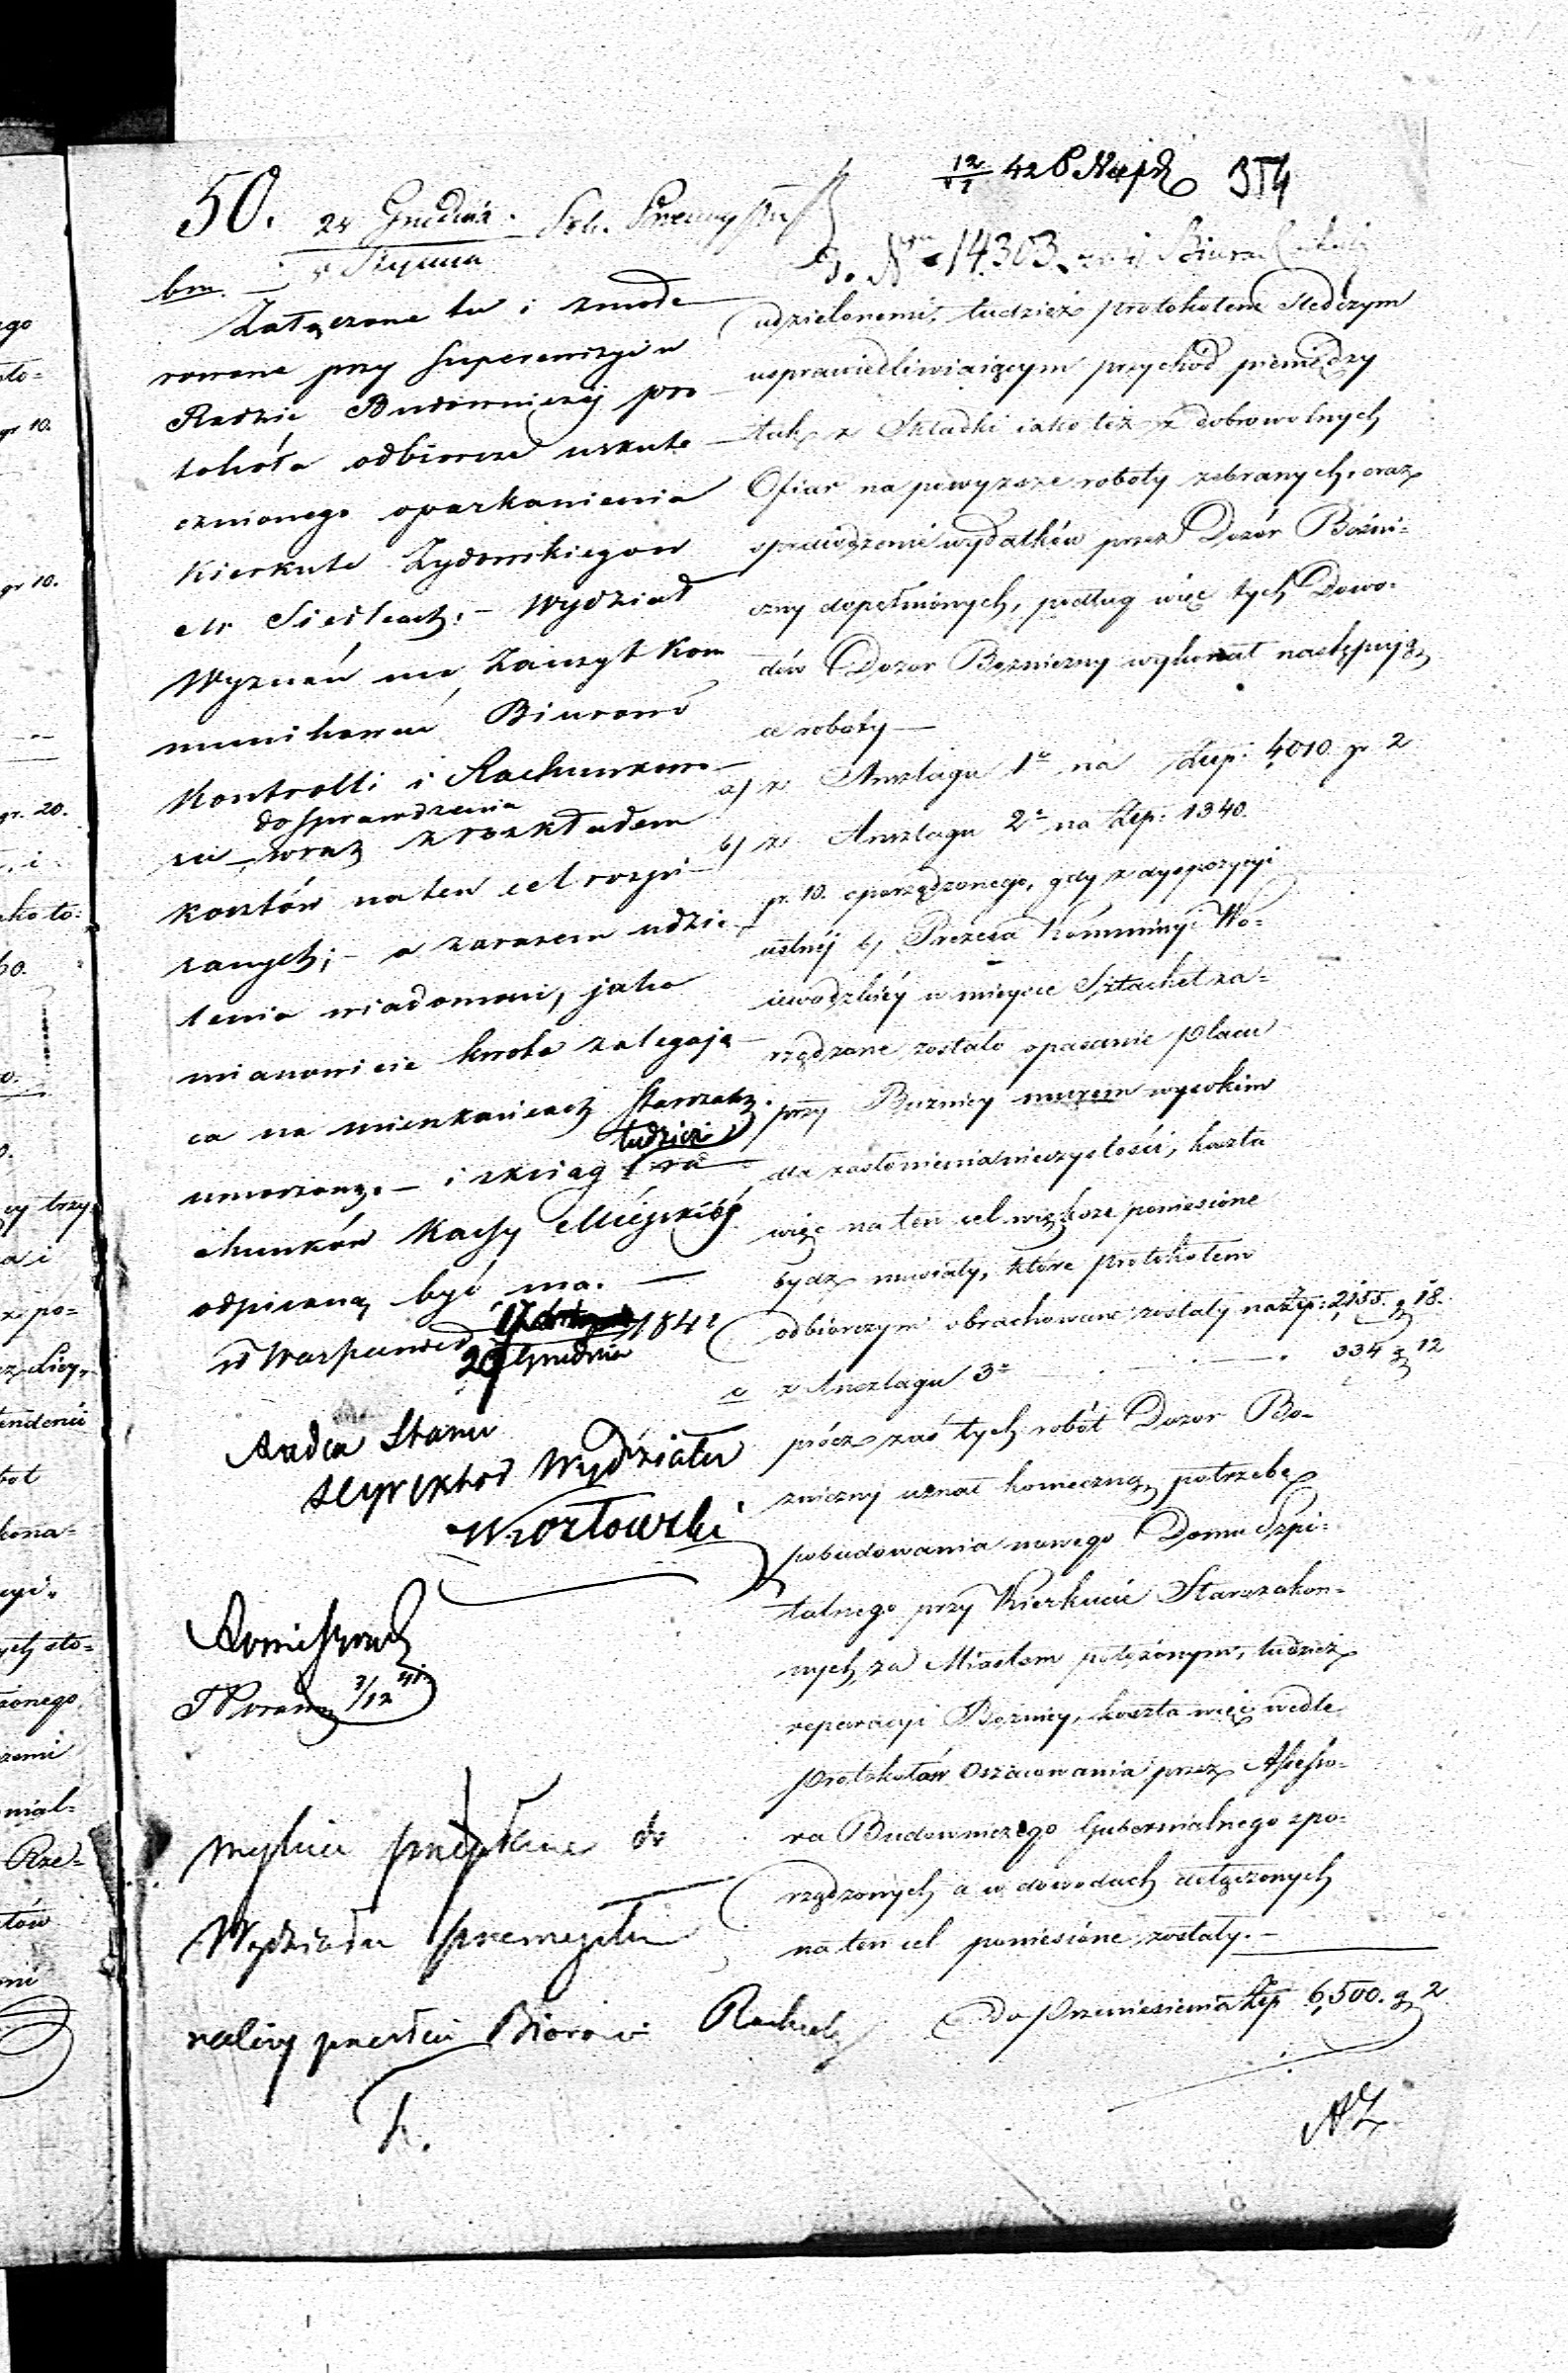 12/1 42 314
50. 24 Grudnia
5 Stycznia
14303
Załączone tu i zmode-
rowane przy superewizyi w
Radzie Budowniczej pro-
tokóła odbiorcze uskute-
cznionego oparkanienia
Kierkuta Żydowskiego w
M. Siedlcach. – Wydział
Wyznań ma zaszczyt kom
munikować Biurowi
Kontrolli i Rachunkowo-
do sprawdzenia
ści – wraz z rozkładem
kosztów na ten cel rozpi-
sanych; – a zarazem udzie-
lenia wiadomości, jaka
mianowicie kwota zalegają-
ca na mieszkańcach Starozak.
tudzież
umorzoną. – i z ksiąg i ra-
chunków Kassy Miejskiéj
odpisaną być ma. –
w Warszawie 1842
29 Grudnia
Radca Stanu
Dyrektor Wydziału
Kozłowski
3/12 41
mylnie przysłane do
Wydziału Przemysłu
należy przesłać Biorowi Rachuby
K.
udzielonemi, tudzież protokołem Śledczym
usprawiedliwiaiącym przychód pieniędzy
tak z Składki iako też z dobrowolnych
Ofiar na powyższe roboty zebranych, oraz
sprawdzenie wydatków przez Dozór Bóżni-
czny dopełnionych, podług więc tych Dowo-
dów Dozor Bożniczny wykonał następują-
ce roboty –
a) z Anszlagu 1o na Złp: 4010 gr 2
b) z Anszlagu 2o na Złp: 1340.
gr. 10. sporządzonego, gdy z dyspozycyi
ustnéj b. Prezesa Kommissyi Wo-
iewodzkiéy w mieysce Sztachet za-
rządzone zostało opasanie placu
przy Bużnicy murem wysokim
dla zasłonienia nieczystości, koszta
więc na ten cel większe poniesione
bydź musiały, które protokołem
odbiorczym obrachowane zostały na Złp: 2155. gr 18.
c z Anszlagu 3o . . . 334 gr 12
prócz zaś tych robót Dozor Bo-
żniczny uznał konieczną potrzebę
pobudowania nowego Domu Szpi-
talnego przy Kierkucie Starozakon-
nych za Miastem położonym, tudzież
reparacyi Bożnicy, koszta więc wedle
protokołów Oszacowania przez Assesso-
ra Budowniczego Gubernialnego spo-
rządzonych a w dowodach dołączonych
na ten cel poniesione zostały. –
do przeniesienia Złp 6,500. gr 2
AZ